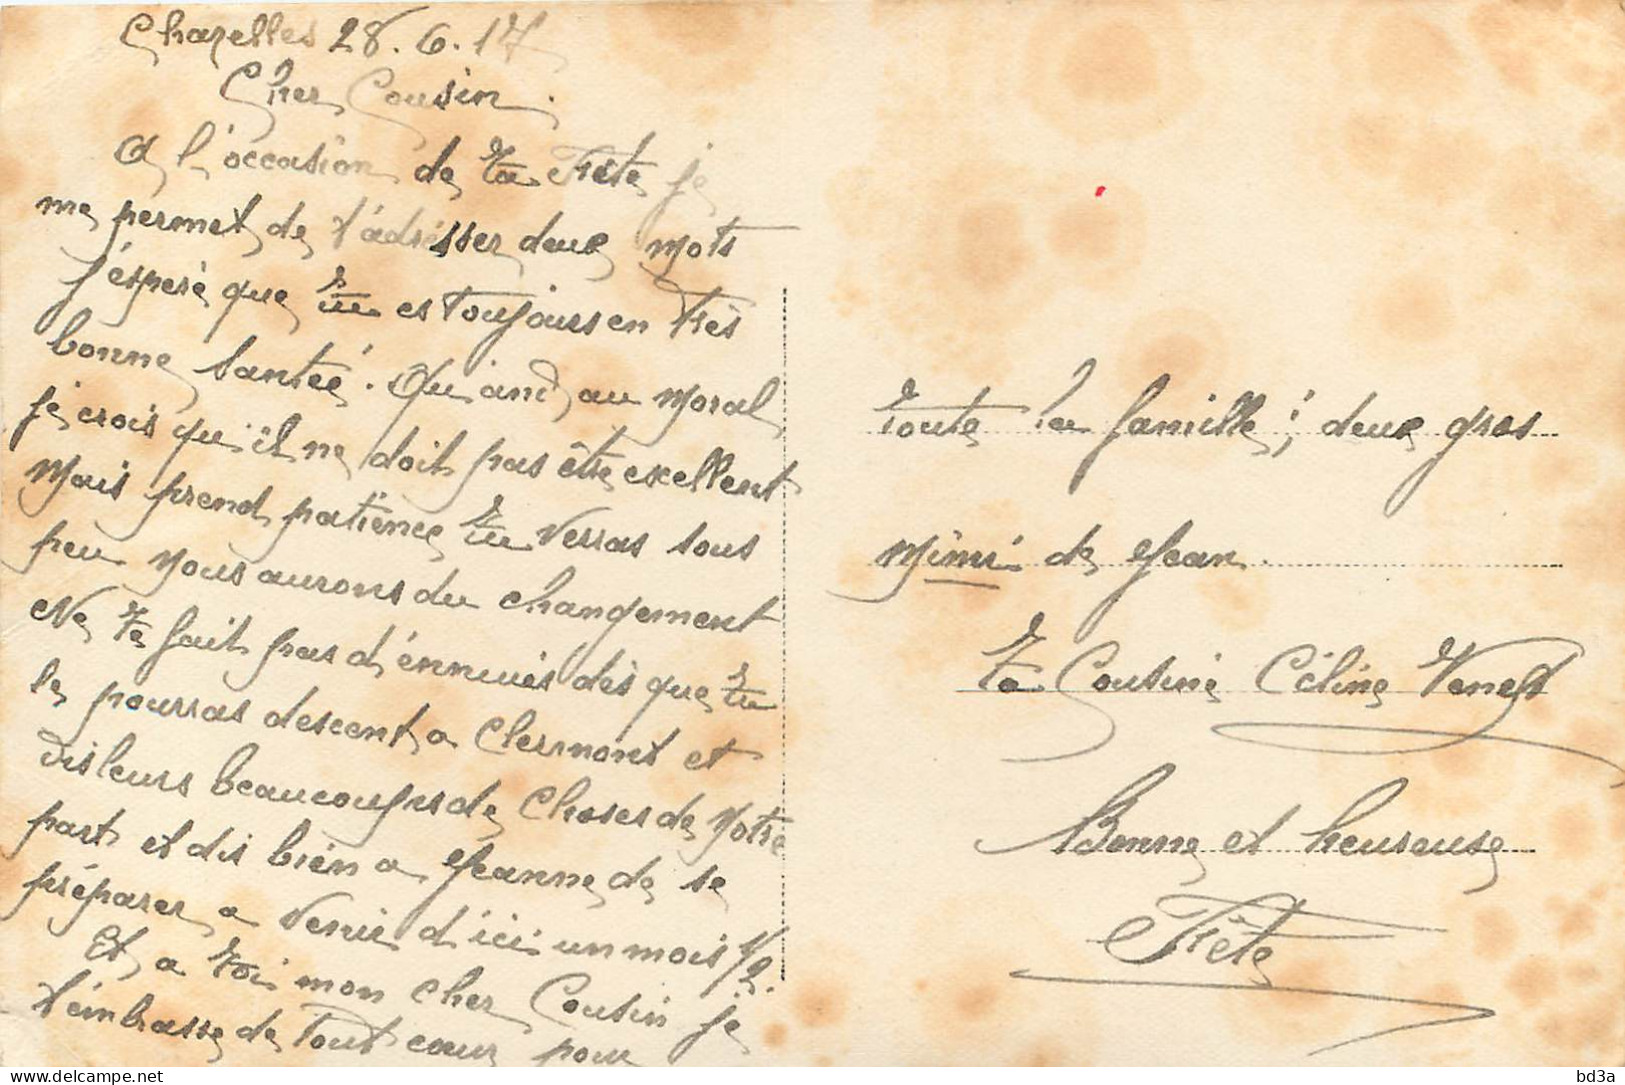 Chazelles 28.6.17
Cher Cousin.
A l'occasion de ta Fête je
me permet de t'adrésser deux mots
j'espère que tu es toujours en très
bonne Santée. Quand au moral
je crois qu'il ne doit pas être exellent
Mais prend patience tu verras sous
peu nous aurons du changement
Ne te fait pas d'ennuies dès que tu
le pourras descent a Clermont et
dis leurs beaucoups de choses de notre
part et dis bien a Jeanne de se
préparer a venir d'ici un mois 1/2.
Et a toi mon cher Cousin je
t'embrasse de tout cœur pour
toute la famille; deux gros
mimi de Jean
ta Cousine Céline
Bonne et heureuse
Fête
bd3a